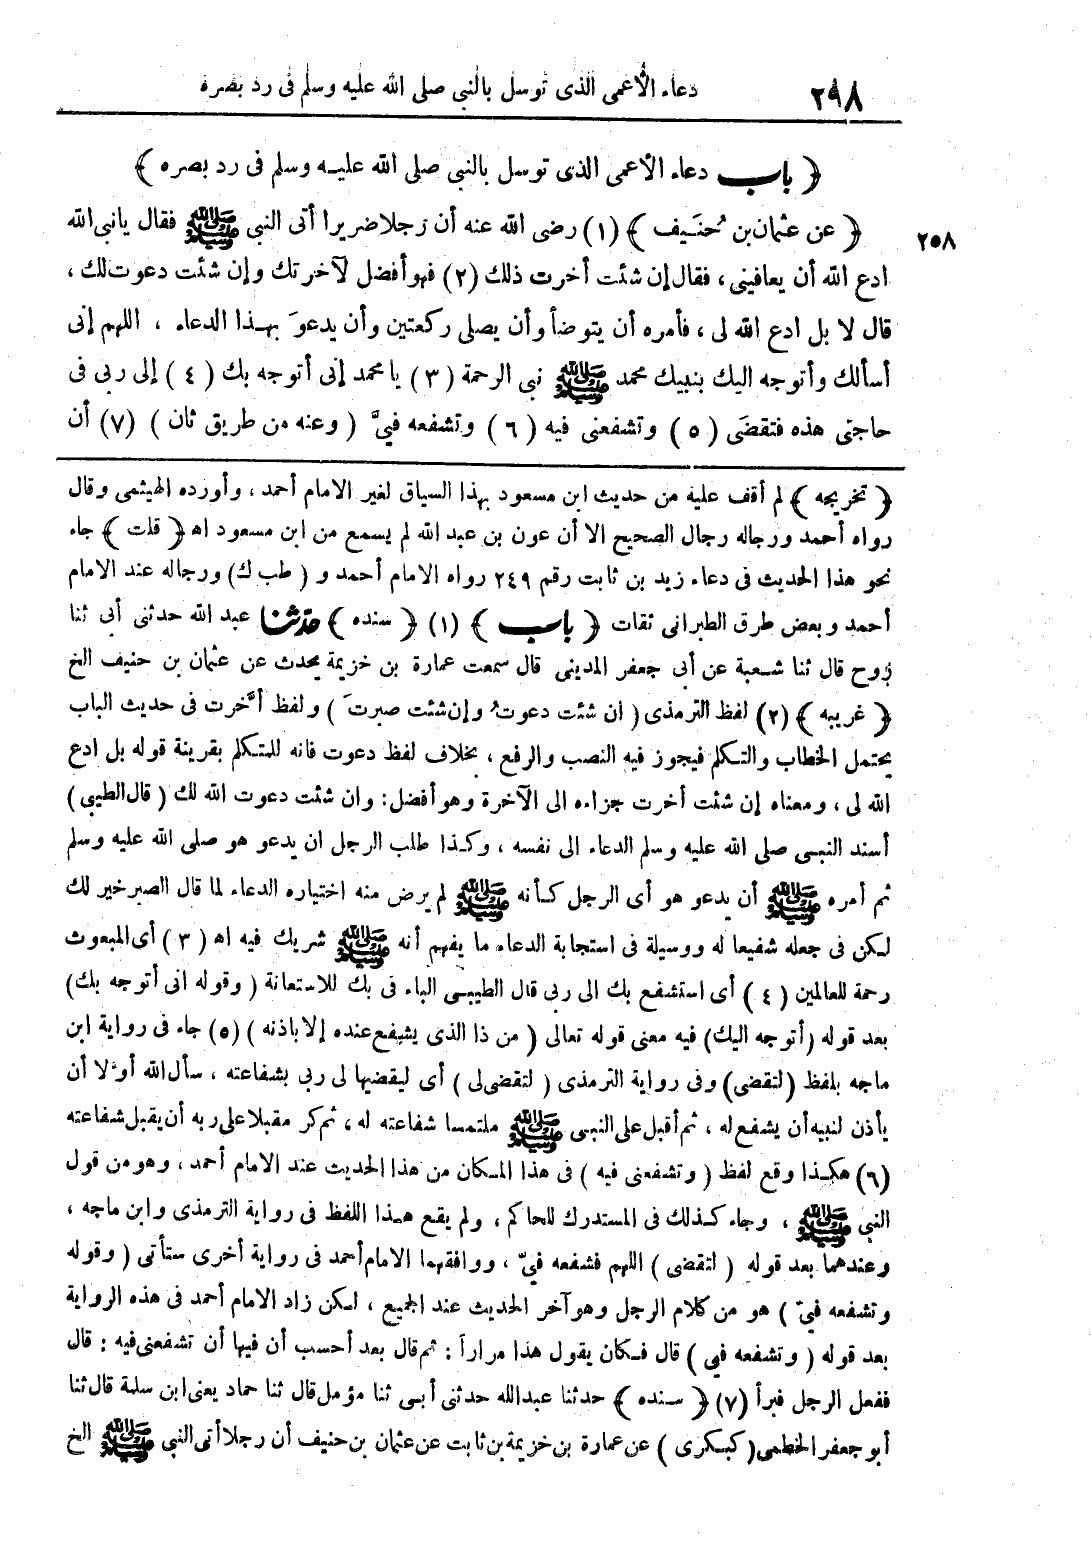 ٢٩٨ دعاء الأعمى الذى توسل بالنبى صلى الله عليه وسلم فى رد بصره
﴿ باب دعاء الأعمى الذى توسل بالنبى صلى الله عليه وسلم فى رد بصره ﴾
٢٥٨ ﴿ عن عثمان بن حُنَيف ﴾ (١) رضى الله عنه أن رجلا ضريرا أتى النبى ﷺ فقال يانبى الله
ادع الله أن يعافينى ، فقال إن شئت أخرت ذلك (٢) فهو أفضل لآخرتك وإن شئت دعوت لك ،
قال لا بل ادع الله لى ، فأمره أن يتوضأ وأن يصلى ركعتين وأن يدعوَ بهذا الدعاء ، اللهم إنى
أسألك وأتوجه اليك بنبيك محمد ﷺ نبى الرحمة (٣) يا محمد إنى أتوجه بك (٤) إلى ربى فى
حاجتى هذه فتقضَى (٥) وتشفعنى فيه (٦) وتشفعه فىَّ ( وعنه من طريق ثان ) (٧) أن
﴿ تخريجه ﴾ لم أقف عليه من حديث ابن مسعود بهذا السياق لغير الامام أحمد ، وأورده الهيثمى وقال
رواه أحمد ورجاله رجال الصحيح الا أن عون بن عبد الله لم يسمع من ابن مسعود اهـ ﴿ قلت ﴾ جاء
نحو هذا الحديث فى دعاء زيد بن ثابت رقم ٢٤٩ رواه الامام أحمد و ( طب ك) ورجاله عند الامام
أحمد وبعض طرق الطبرانى ثقات ﴿ باب ﴾ (١) ﴿ سنده ﴾ حدثنا عبد الله حدثنى أبى ثنا
روح قال ثنا شعبة عن أبى جعفر المدينى قال سمعت عمارة بن خزيمة يحدث عن عثمان بن حنيف الخ
﴿ غريبه ﴾ (٢) لفظ الترمذى ( ان شئت دعوتُ وإن شئت صبرتَ ) ولفظ أخَّرت فى حديث الباب
يحتمل الخطاب والتكلم فيجوز فيه النصب والرفع ، بخلاف لفظ دعوت فانه للمتكلم بقرينة قوله بل ادع
الله لى ، ومعناه إن شئت أخرت جزاءه الى الآخرة وهو أفضل : وان شئت دعوت الله لك ( قال الطيبى )
أسند النبى صلى الله عليه وسلم الدعاء الى نفسه ، وكذا طلب الرجل ان يدعو هو صلى الله عليه وسلم
ثم أمره ﷺ أن يدعو هو أى الرجل كأنه ﷺ لم يرض منه اختياره الدعاء لما قال الصبر خير لك
لكن فى جعله شفيعا له ووسيلة فى استجابة الدعاء ما يفهم أنه ﷺ شريك فيه اهـ (٣) أى المبعوث
رحمة للعالمين (٤) أى استشفع بك الى ربى قال الطيبى الباء فى بك للاستعانة ( وقوله انى أتوجه بك)
بعد قوله (أتوجه اليك) فيه معنى قوله تعالى ( من ذا الذى يشفع عنده إلا باذنه ) (٥) جاء فى رواية ابن
ماجه بلفظ (لتقضى) وفى رواية الترمذى ( لتقضى لى ) أى ليقضيها لى ربى بشفاعته ، سأل الله أولا أن
يأذن لنبيه أن يشفع له ، ثم أقبل على النبى ﷺ ملتمسا شفاعته له ، ثم كر مقبلا على ربه أن يقبل شفاعته
(٦) هكذا وقع لفظ ( وتشفعنى فيه ) فى هذا المكان من هذا الحديث عند الامام أحمد ، وهو من قول
النبى ﷺ ، وجاء كذلك فى المستدرك للحاكم ، ولم يقع هذا اللفظ فى رواية الترمذى وابن ماجه ،
وعندهما بعد قوله ( لتقضى ) اللهم فشفعه فىّ ، ووافقهما الامام أحمد فى رواية أخرى ستأتى ( وقوله
وتشفعه فىّ ) هو من كلام الرجل وهو آخر الحديث عند الجميع ، لكن زاد الامام أحمد فى هذه الرواية
بعد قوله ( وتشفعه فى ) قال فكان يقول هذا مراراً : ثم قال بعد أحسب أن فيها أن تشفعنى فيه : قال
ففعل الرجل فبرأ (٧) ﴿ سنده ﴾ حدثنا عبد الله حدثنى أبى ثنا مؤمل قال ثنا حماد يعنى ابن سلمة قال ثنا
أبو جعفر الخطمى (كبكرى) عن عمارة بن خزيمة بن ثابت عن عثمان بن حنيف أن رجلا أتى النبى ﷺ الخ